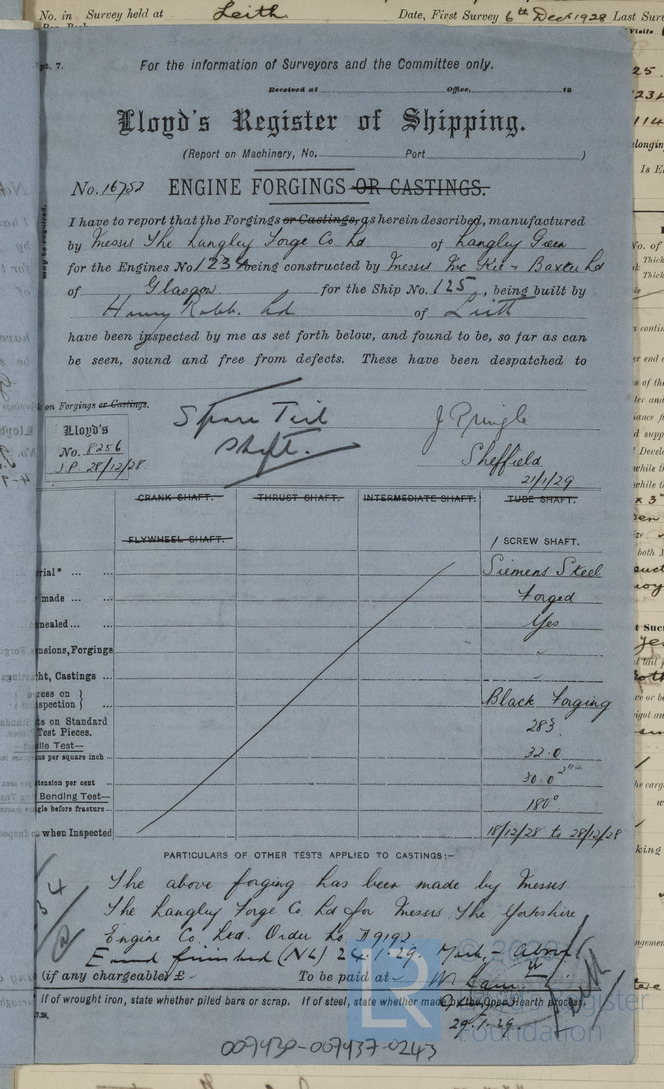 No. in Survey held at Leith Date, First Survey 6th Dec 1928 Last Surv
pt. 7.
For the information of Surveyors and the Committee only.
Received at Office, 19
Lloyd's Register of Shipping.
(Report on Machinery, No. Port )
No. 16752 ENGINE FORGINGS OR CASTINGS.
I have to report that the Forgings or Castings, as herein described, manufactured
by Messrs The Langley Forge Co. Ld of Langley Green
for the Engines No. 1234 being constructed by Messrs Mc Kie & Baxter Ld
of Glasgow for the Ship No. 125, being built by
Henry Robb. Ld of Leith
have been inspected by me as set forth below, and found to be, so far as can
be seen, sound and free from defects. These have been despatched to
on Forgings or Castings.
Spare Tail
Shaft.
J Pringle
Sheffield
21/1/29
Lloyd's
No. 8256
J.P. 28/12/28
CRANK SHAFT. THRUST SHAFT. INTERMEDIATE SHAFT. TUBE SHAFT.
FLYWHEEL SHAFT. / SCREW SHAFT.
rial* ... ... Siemens Steel
made ... ... Forged
nealed ... ... Yes
nsions, Forgings
ht, Castings ...
ress on }
nspection } ... Black Forging
ts on Standard
Test Pieces. 283
ile Test—
ns per square inch ... 32.0
tension per cent ... 30.0 2"
Bending Test—
gle before fracture ... 180°
when Inspected 18/12/28 to 28/12/28
PARTICULARS OF OTHER TESTS APPLIED TO CASTINGS:—
The above forging has been made by Messrs
The Langley Forge Co. Ld for Messrs The Yorkshire
Engine Co. Ltd. Order No
finished (NL) 24.1.29. Mark, - Above
(if any chargeable) £ To be paid at
If of wrought iron, state whether piled bars or scrap. If of steel, state whether made by the Open Hearth process.
7.28.
29.1.29.
Leith
LR
Foundation
007430-007437-0243